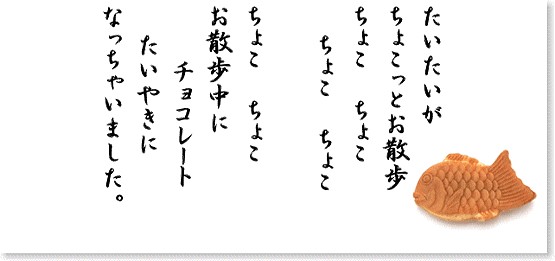 たいたいが
ちょこっとお散歩
ちょこ　ちょこ
ちょこ　ちょこ
ちょこ　ちょこ
お散歩中に
チョコレート
たいやきに
なっちゃいました。